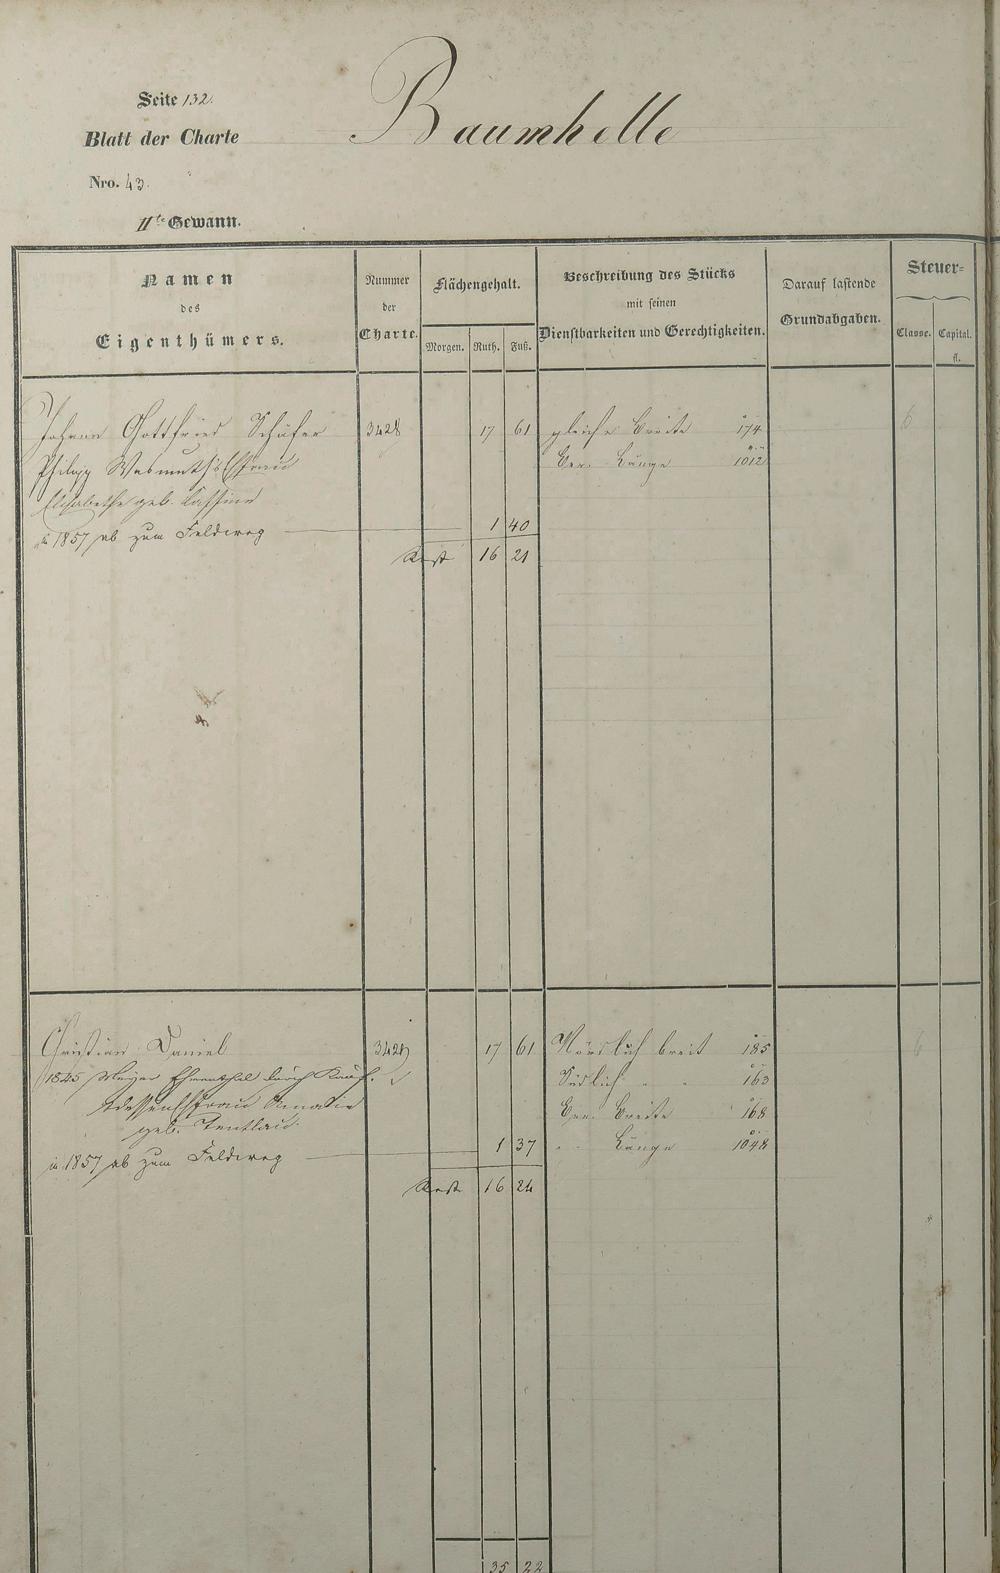 Seite 132.
Baumhelle
Blatt der Charte
Nro. 43.
IIte Gewann.
Namen
des
Eigenthümers.
Nummer
der
Charte.
Flächengehalt.
Morgen. Ruth. Fuß.
Beschreibung des Stücks
mit seinen
Dienstbarkeiten und Gerechtigkeiten.
Darauf lastende
Grundabgaben.
Steuer-
Classe. Capital.
fl.
Johann Gottfried Schäfer 3428 17 61 gleiche Breite 174 6
Philipp Wasmuths Ehefrau Ver. Länge 1012
Elisabethe geb.
in 1857 ab zum Feldweg 1 40
Rest 16 21
Christian Daniel 3429 17 61 Nördlich breit 185 6
1845 Meyer Ehrenthal durch Kauf. Südlich " " 163
dessen Ehefrau Amalie Ver. Breite 168
geb.
in 1857 ab zum Feldweg 1 37 " Länge 1048
Rest 16 24
35 22